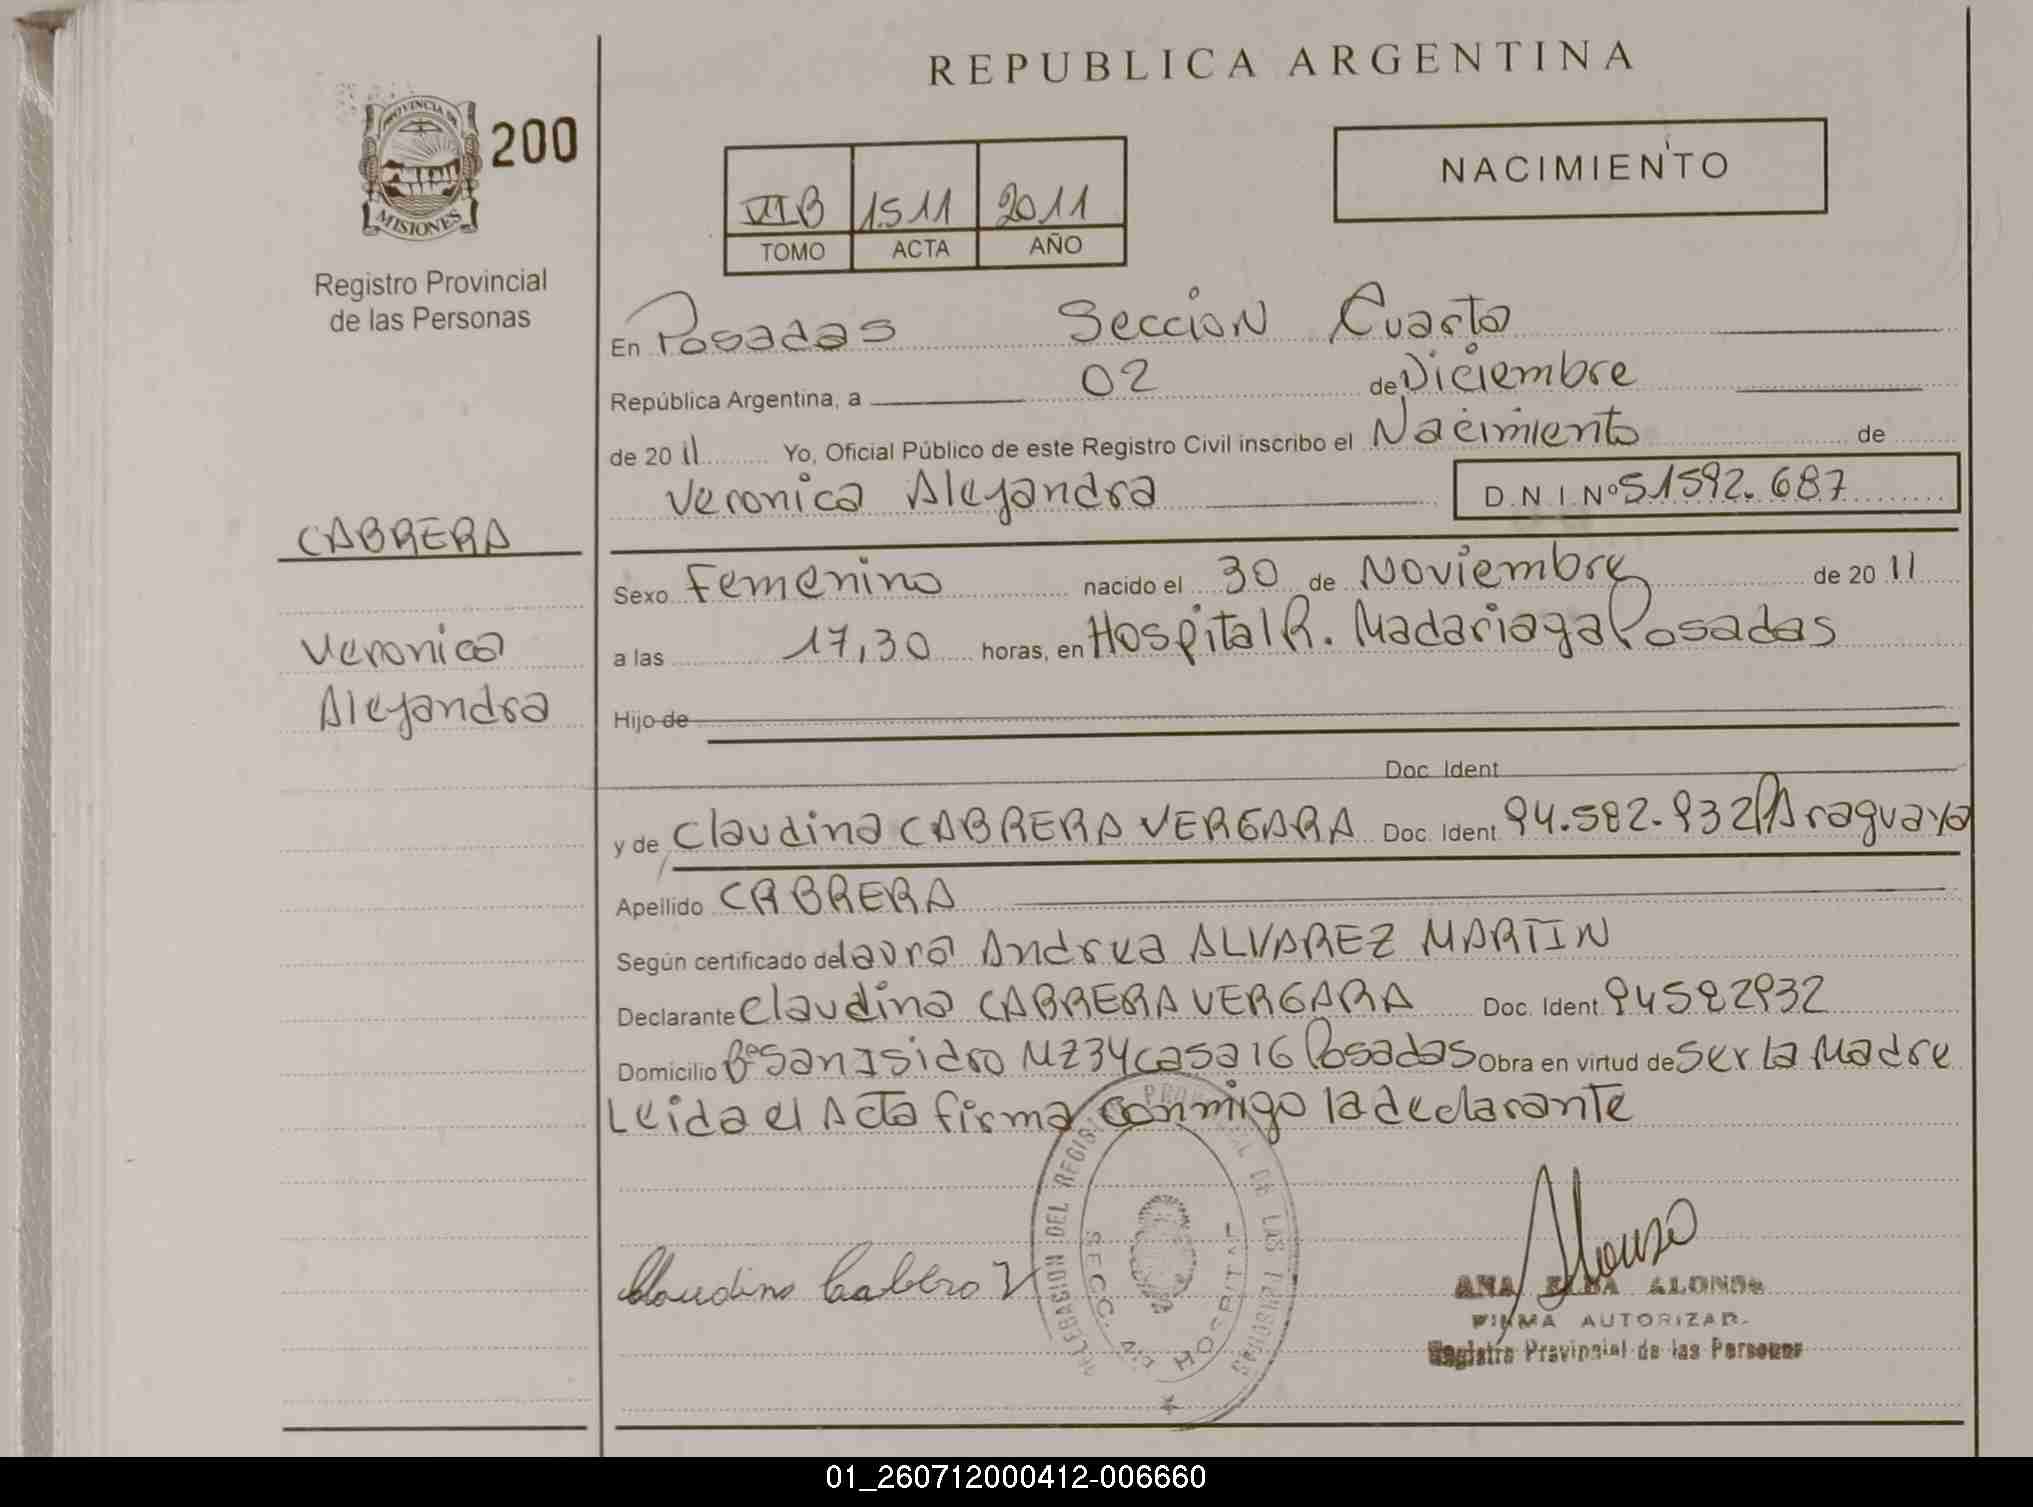 REPUBLICA ARGENTINA
PROVINCIA DE
MISIONES
200
Registro Provincial
de las Personas
NACIMIENTO
VI B 1511 2011
TOMO ACTA AÑO
En Posadas Sección Cuarta
República Argentina, a 02 de Diciembre
de 2011 Yo, Oficial Público de este Registro Civil inscribo el Nacimiento de
Veronica Alejandra D.N.I. Nº 51592.687
CABRERA
Veronica
Alejandra
Sexo Femenino nacido el 30 de Noviembre de 2011
a las 17,30 horas, en Hospital R. Madariaga Posadas
Hijo de
Doc. Ident
y de Claudina CABRERA VERGARA Doc. Ident. 94.582.932 Paraguaya
Apellido CABRERA
Según certificado de Laura Andrea ALVAREZ MARTIN
Declarante Claudina CABRERA VERGARA Doc. Ident. 94582932
Domicilio Bº San Isidro MZ 34 casa 16 Posadas Obra en virtud de Ser la Madre
Leida el Acta firma conmigo la declarante
Claudina Cabrera V
DEL REGISTRO PROVINCIAL DE LAS PERSONAS
SECC. 4ta HOSPITAL
Alonso
ANA ELBA ALONSO
FIRMA AUTORIZAD.
Registro Provincial de las Personas
01_260712000412-006660